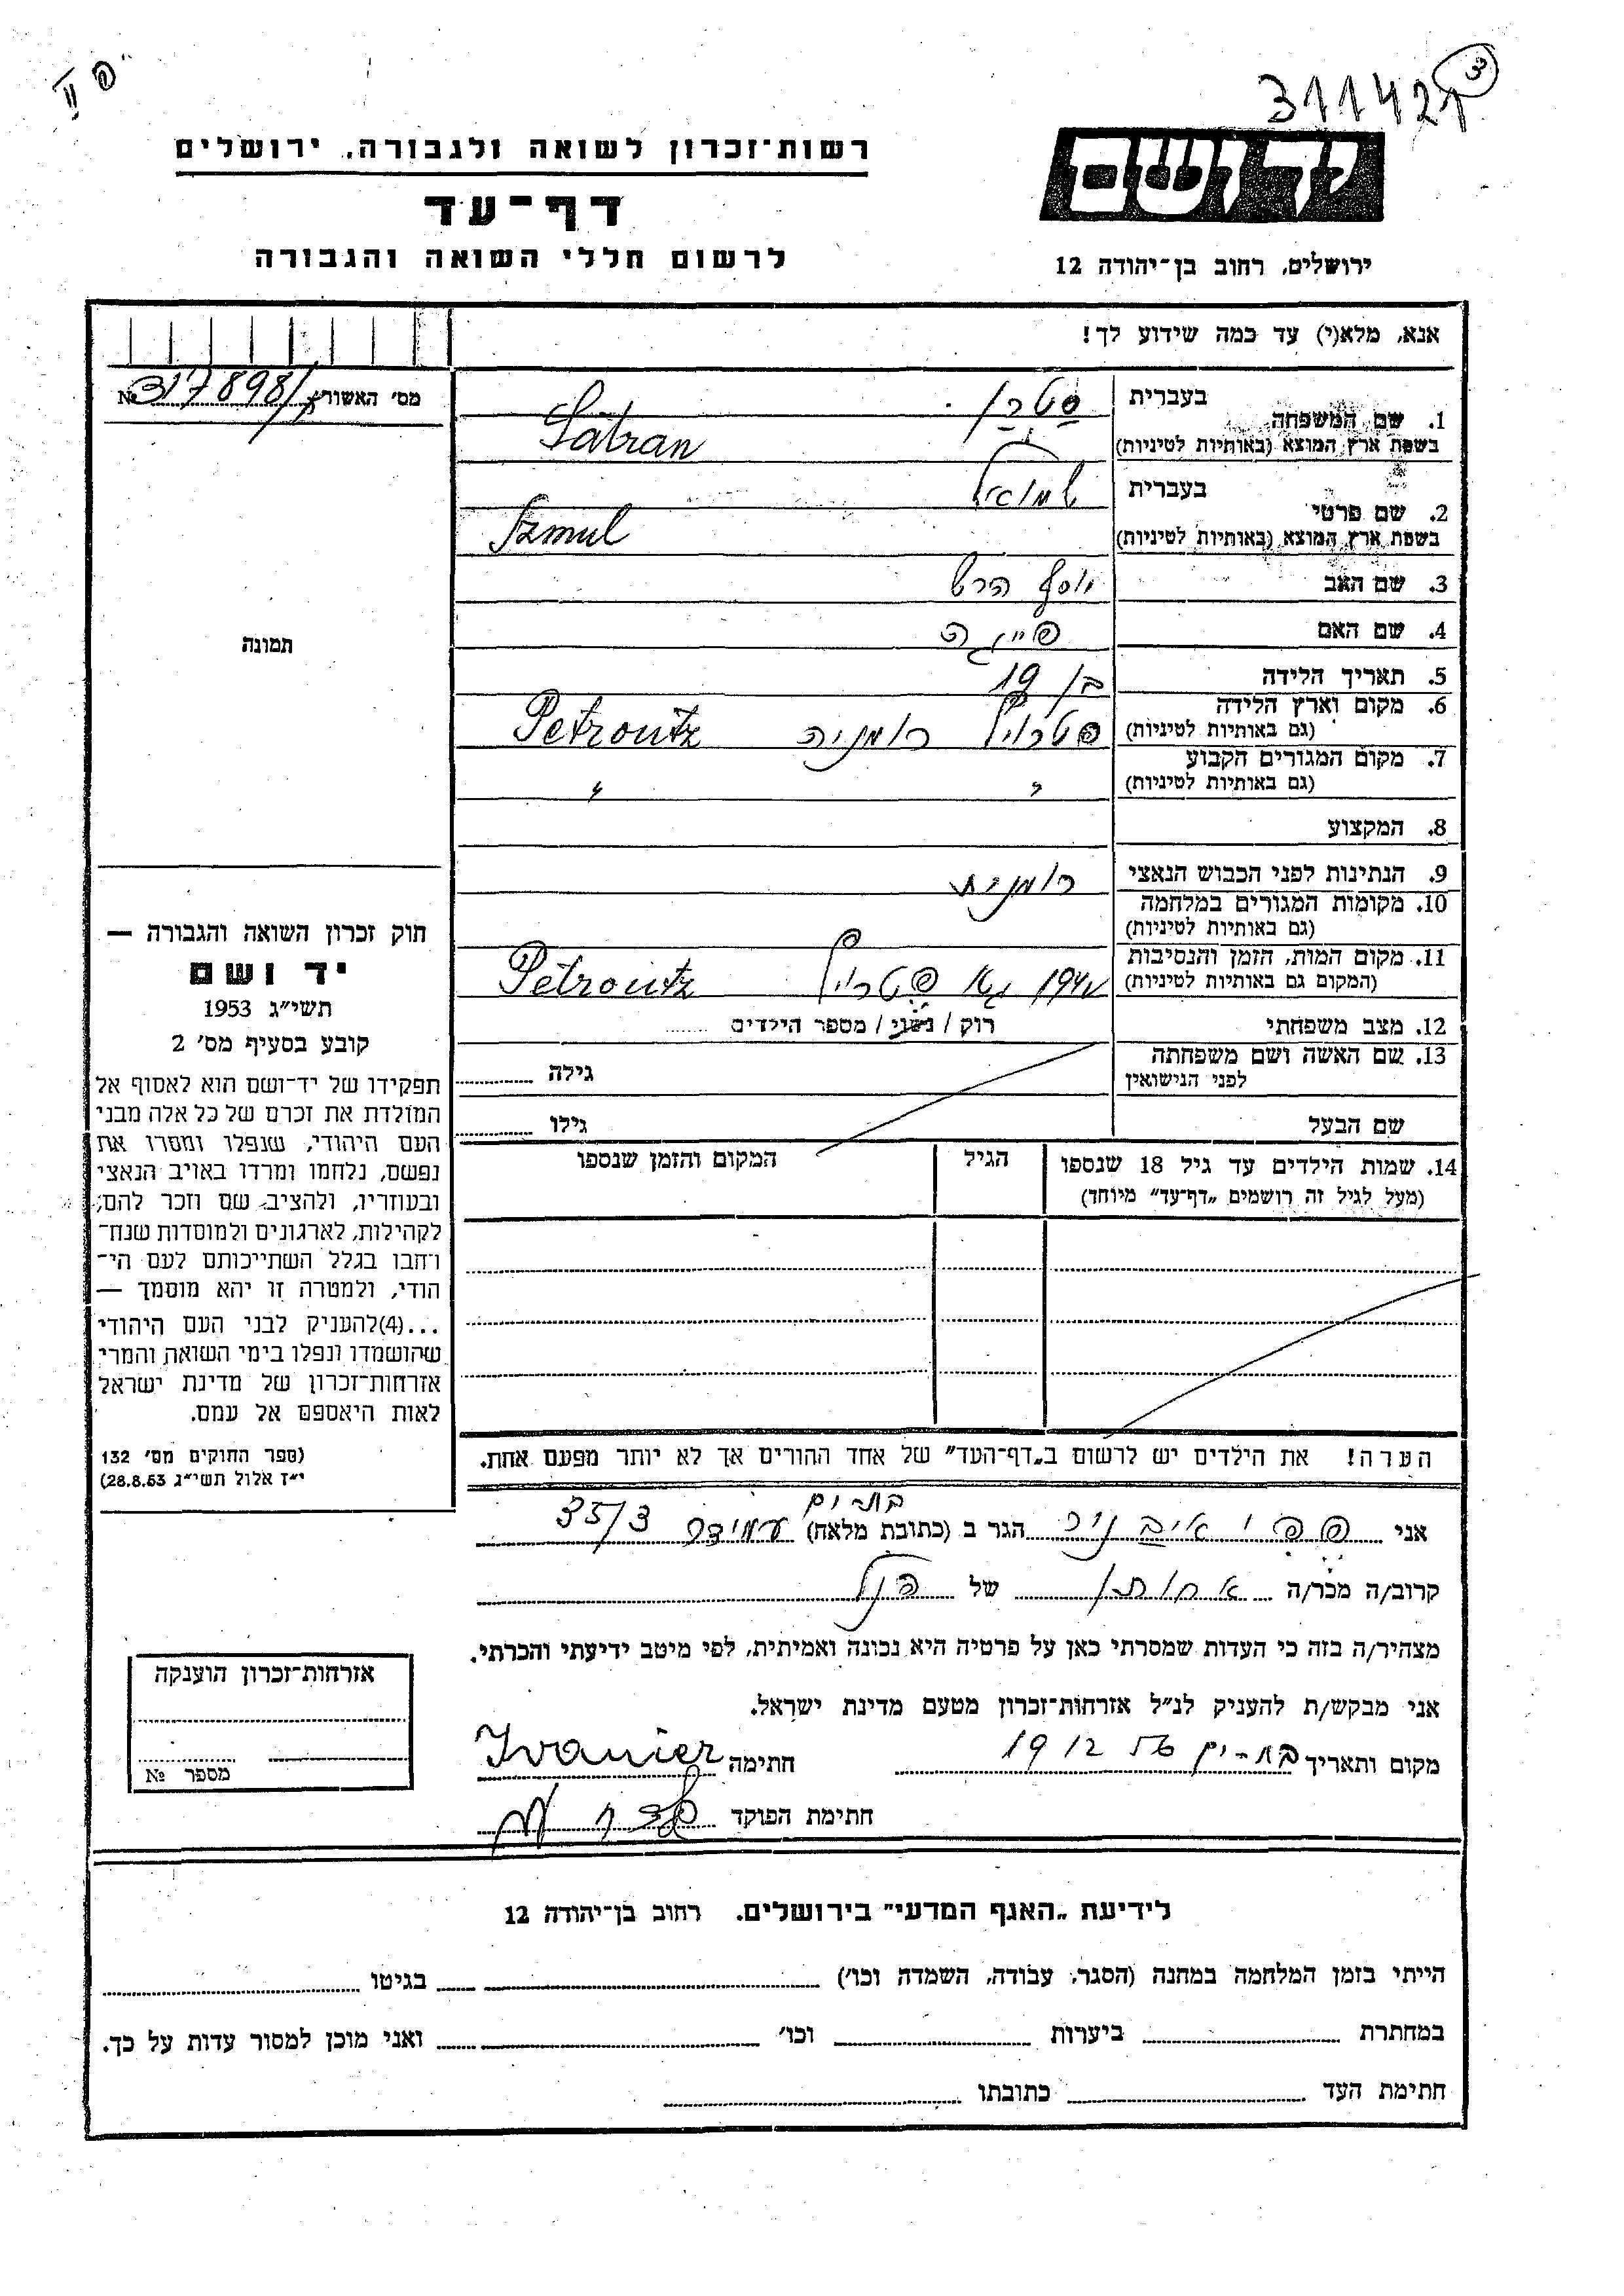 פ II
3
311421
רשות־זכרון לשואה ולגבורה, ירושלים
דף־עד
לרשום חללי השואה והגבורה
ידושם
ירושלים, רחוב בן־יהודה 12
אנא, מלא(י) עד כמה שידוע לך!
מס׳ האשורי № 317898/
1. שם המשפחה בעברית סטרן
בשפת ארץ המוצא (באותיות לטיניות) Satran
2. שם פרטי בעברית שמואל
בשפת ארץ המוצא (באותיות לטיניות) Szmul
3. שם האב יוסף הרש
4. שם האם פייגה
5. תאריך הלידה בן 19
6. מקום וארץ הלידה (גם באותיות לטיניות) פטרוץ רומניה Petroutz
7. מקום המגורים הקבוע (גם באותיות לטיניות) " "
8. המקצוע
9. הנתינות לפני הכבוש הנאצי רומנית
10. מקומות המגורים במלחמה (גם באותיות לטיניות)
11. מקום המות, הזמן והנסיבות (המקום גם באותיות לטיניות) פטרוץ Petroutz
12. מצב משפחתי רוק / נשוי / מספר הילדים
13. שם האשה ושם משפחתה לפני הנישואין גילה
שם הבעל גילו
14. שמות הילדים עד גיל 18 שנספו הגיל המקום והזמן שנספו
(מעל לגיל זה רושמים „דף־עד״ מיוחד)
הערה! את הילדים יש לרשום ב„דף־העד״ של אחד ההורים אך לא יותר מפעם אחת.
תמונה
חוק זכרון השואה והגבורה —
יד ושם
תשי״ג 1953
קובע בסעיף מס׳ 2
תפקידו של יד־ושם הוא לאסוף אל
המולדת את זכרם של כל אלה מבני
העם היהודי, שנפלו ומסרו את
נפשם, נלחמו ומרדו באויב הנאצי
ובעוזריו, ולהציב שם וזכר להם,
לקהילות, לארגונים ולמוסדות שנח־
רחבו בגלל השתייכותם לעם הי־
הודי, ולמטרה זו יהא מוסמך —
...(4)להעניק לבני העם היהודי
שהושמדו ונפלו בימי השואה והמרי
אזרחות־זכרון של מדינת ישראל
לאות היאספם אל עמם.
(ספר החוקים מס׳ 132
י״ז אלול תשי״ג 28.8.53)
בת־ים
אני פפי איבניר הגר ב (כתובת מלאה) עמידר 35/3
קרוב/ה מכר/ה אחותו של הנ״ל
מצהיר/ה בזה כי העדות שמסרתי כאן על פרטיה היא נכונה ואמיתית, לפי מיטב ידיעתי והכרתי.
אני מבקש/ת להעניק לנ״ל אזרחות־זכרון מטעם מדינת ישראל.
מקום ותאריך בת-ים 19 12 56 חתימה Ivanier
חתימת הפוקד
אזרחות־זכרון הוענקה
מספר №
לידיעת „האגף המדעי״ בירושלים. רחוב בן־יהודה 12
הייתי בזמן המלחמה במחנה (הסגר, עבודה, השמדה וכו׳) בגיטו
במחתרת ביערות וכו׳ ואני מוכן למסור עדות על כך.
חתימת העד כתובתו